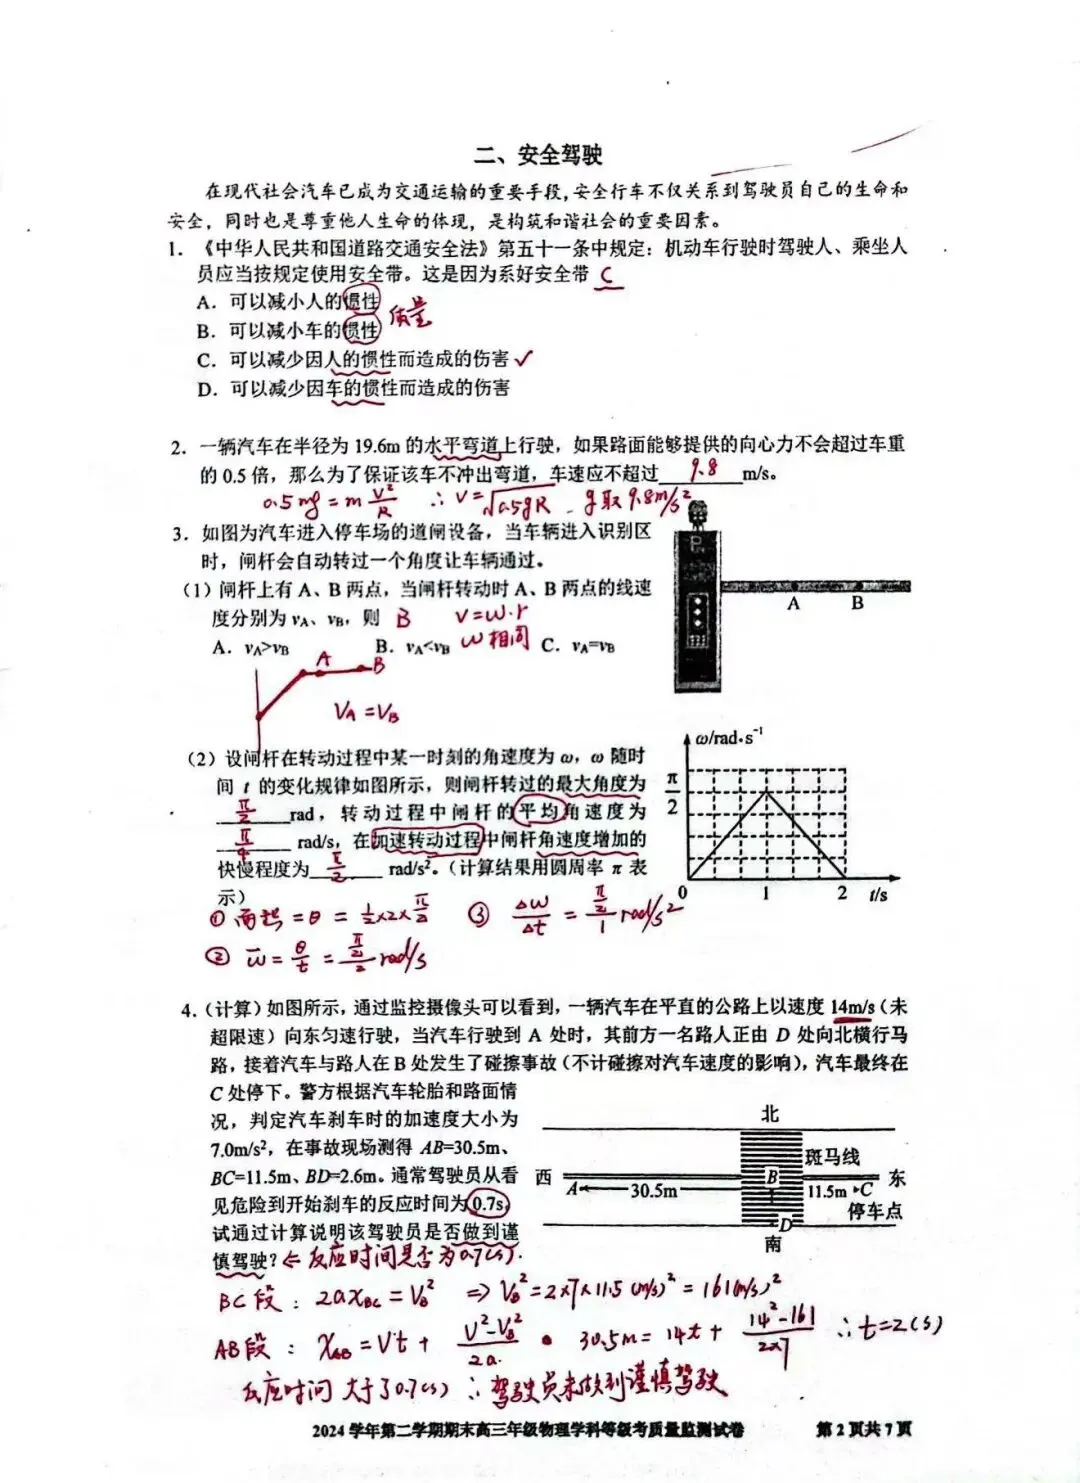 二、安全驾驶
在现代社会汽车已成为交通运输的重要手段,安全行车不仅关系到驾驶员自己的生命和
安全，同时也是尊重他人生命的体现，是构筑和谐社会的重要因素。
1. 《中华人民共和国道路交通安全法》第五十一条中规定：机动车行驶时驾驶人、乘坐人
员应当按规定使用安全带。这是因为系好安全带 C
A. 可以减小人的惯性
质量
B. 可以减小车的惯性
C. 可以减少因人的惯性而造成的伤害 ✓
D. 可以减少因车的惯性而造成的伤害
2. 一辆汽车在半径为 19.6m 的水平弯道上行驶，如果路面能够提供的向心力不会超过车重
的 0.5 倍，那么为了保证该车不冲出弯道，车速应不超过 9.8 m/s。
0.5mg = m V²/R ∴ V = √0.5gR . g取9.8m/s²
3. 如图为汽车进入停车场的道闸设备，当车辆进入识别区
时，闸杆会自动转过一个角度让车辆通过。
(1) 闸杆上有 A、B 两点，当闸杆转动时 A、B 两点的线速
度分别为 vA、vB，则 B V=ω·r
A. vA>vB B. vA<vB ω相同 C. vA=vB
A B
VA = VB
P
A B
(2) 设闸杆在转动过程中某一时刻的角速度为 ω，ω 随时
间 t 的变化规律如图所示，则闸杆转过的最大角度为
π/2 rad，转动过程中闸杆的平均角速度为
π/4 rad/s，在加速转动过程中闸杆角速度增加的
快慢程度为 π/2 rad/s²。（计算结果用圆周率 π 表
示）
ω/rad·s⁻¹
π/2
0 1 2 t/s
① 面积 = θ = ½×2×π/2 ③ Δω/Δt = (π/2)/1 rad/s²
② ω̅ = θ/t = (π/2)/2 rad/s
4.（计算）如图所示，通过监控摄像头可以看到，一辆汽车在平直的公路上以速度 14m/s（未
超限速）向东匀速行驶，当汽车行驶到 A 处时，其前方一名路人正由 D 处向北横行马
路，接着汽车与路人在 B 处发生了碰擦事故（不计碰擦对汽车速度的影响），汽车最终在
C 处停下。警方根据汽车轮胎和路面情
况，判定汽车刹车时的加速度大小为
7.0m/s²，在事故现场测得 AB=30.5m、
BC=11.5m、BD=2.6m。通常驾驶员从看
见危险到开始刹车的反应时间为0.7s，
试通过计算说明该驾驶员是否做到谨
慎驾驶？ ⇐ 反应时间是否为0.7(s).
北
斑马线
西 A 30.5m B 11.5m C 东
停车点
D
南
BC段：2aXBC = VB² ⇒ VB² = 2×7×11.5 (m/s)² = 161(m/s)²
AB段：XAB = Vt + (V²-VB²)/2a · 30.5m = 14t + (14²-161)/(2×7) ∴ t=2(s)
反应时间 大于了0.7(s) ∴ 驾驶员未做到谨慎驾驶
2024 学年第二学期期末高三年级物理学科等级考质量监测试卷 第 2 页共 7 页